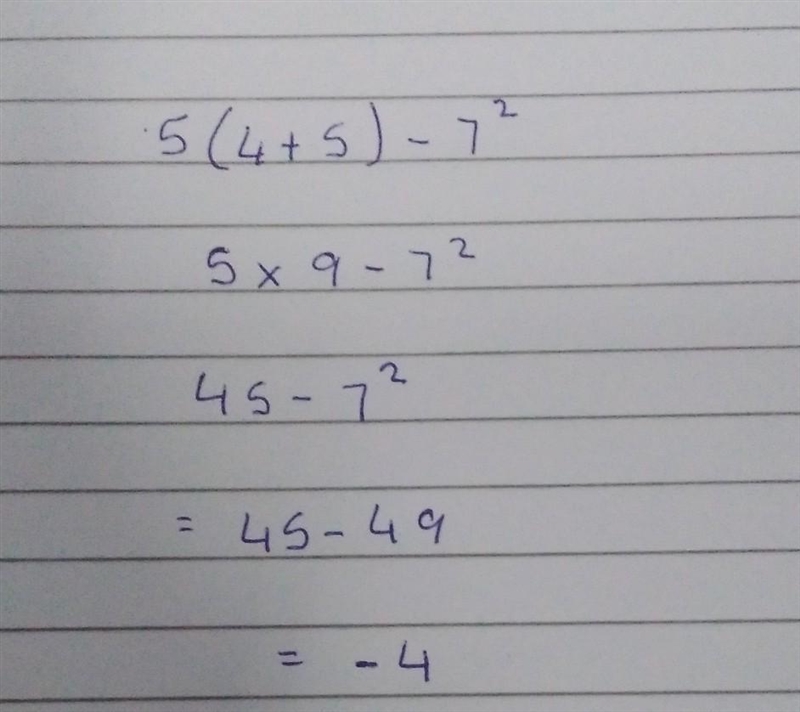 5(4+5)-7²
5×9-7²
45-7²
= 45-49
= -4